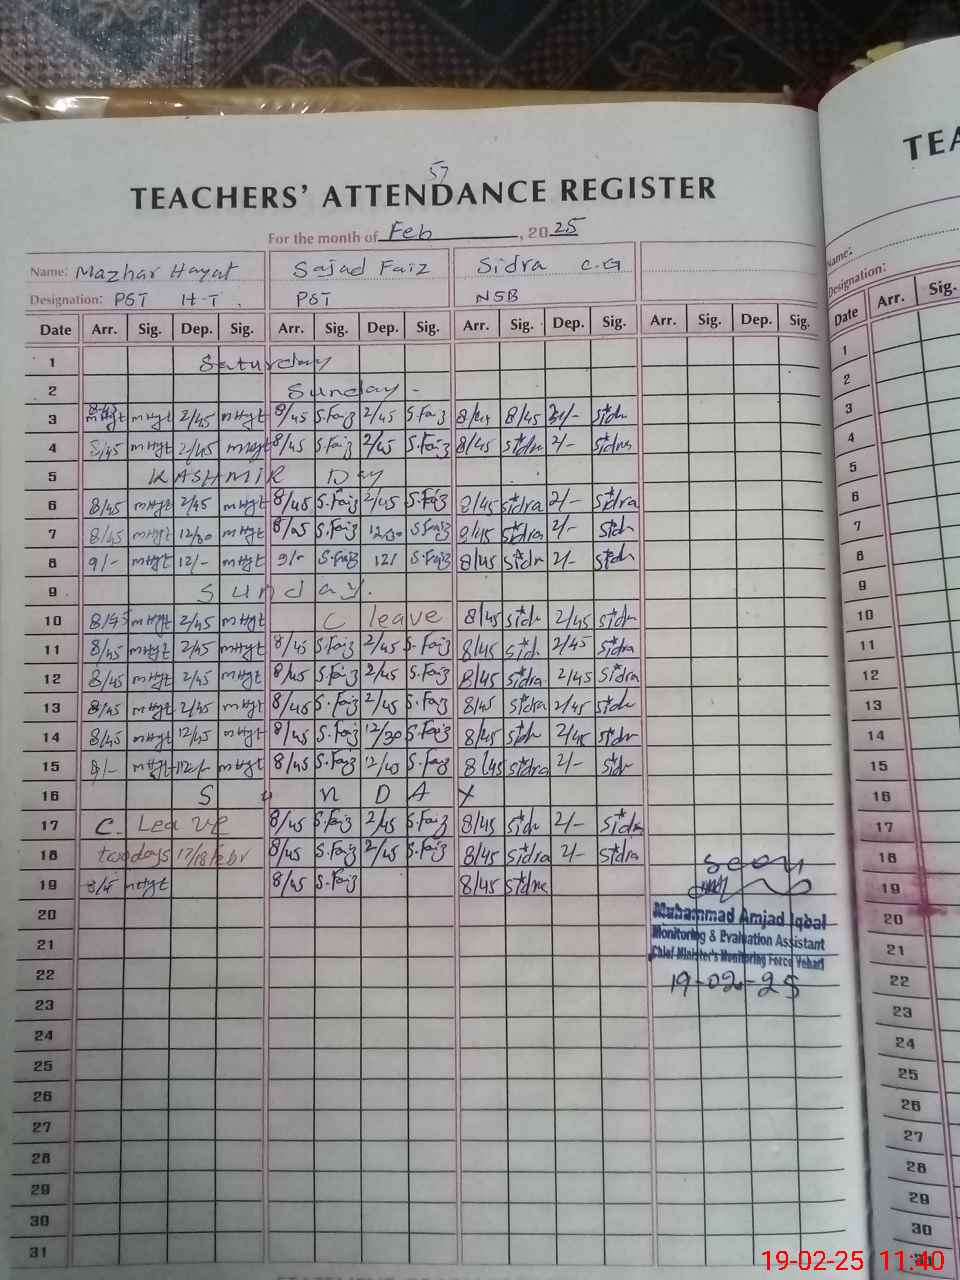 57
TEACHERS' ATTENDANCE REGISTER
For the month of Feb, 2025
Name: Mazhar Hayat Sajad Faiz Sidra C.G
Designation: PST H-T. PST NSB
Date Arr. Sig. Dep. Sig. Arr. Sig. Dep. Sig. Arr. Sig. Dep. Sig. Arr. Sig. Dep. Sig.
1 Saturday
2 Sunday -
3 mHyt mHyt 2/45 mHyt 8/45 S.Faiz 2/45 S.Faiz 8/45 2/- Sidr
4 8/45 mHyt 2/45 mHyt 8/45 S.Faiz 2/45 S.Faiz 8/45 Sidra 2/- Sidra
5 KASHMIR Day
6 8/45 mHyt 2/45 mHyt 8/45 S.Faiz 2/45 S.Faiz 8/45 Sidra 2/- Sidra
7 8/45 mHyt 12/30 mHyt 8/45 S.Faiz 1230 S.Faiz 8/45 Sidra 2/- Sidr
8 9/- mHyt 12/- mHyt 9/- S.Faiz 12/ S.Faiz 8/45 Sidra 2/- Sidr
9 Sunday.
10 8/45 mHyt 2/45 mHyt C leave 8/45 Sidr 2/45 Sidr
11 8/45 mHyt 2/45 mHyt 8/45 S.Faiz 2/45 S.Faiz 8/45 Sid. 2/45 Sidra
12 8/45 mHyt 2/45 mHyt 8/45 S.Faiz 2/45 S.Faiz 8/45 Sidra 2/45 Sidra
13 8/45 mHyt 2/45 mHyt 8/45 S.Faiz 2/45 S.Faiz 8/45 Sidra 2/45 Sidr
14 8/45 mHyt 12/45 mHyt 8/45 S.Faiz 12/30 S.Faiz 8/45 Sidr 2/45 Sidr
15 9/- mHyt 12/- mHyt 8/45 S.Faiz 12/40 S.Faiz 8/45 Sidra 2/- Sidr
16 S u n D A Y
17 C. Leave 8/45 S.Faiz 2/45 S.Faiz 8/45 Sidr 2/- Sidra
18 two days 17/18 Febr 8/45 S.Faiz 2/45 S.Faiz 8/45 Sidra 2/- Sidra
19 8/45 mHyt 8/45 S.Faiz 8/45 Sidra
20
21
22
23
24
25
26
27
28
29
30
31
seen
Muhammad Amjad Iqbal
Monitoring & Evaluation Assistant
Chief Minister's Monitoring Force Vehari
19-02-25
TEA
Name:
Designation:
Date Arr. Sig.
1
2
3
4
5
6
7
8
9
10
11
12
13
14
15
16
17
18
19
20
21
22
23
24
25
26
27
28
29
30
19-02-25 11:40